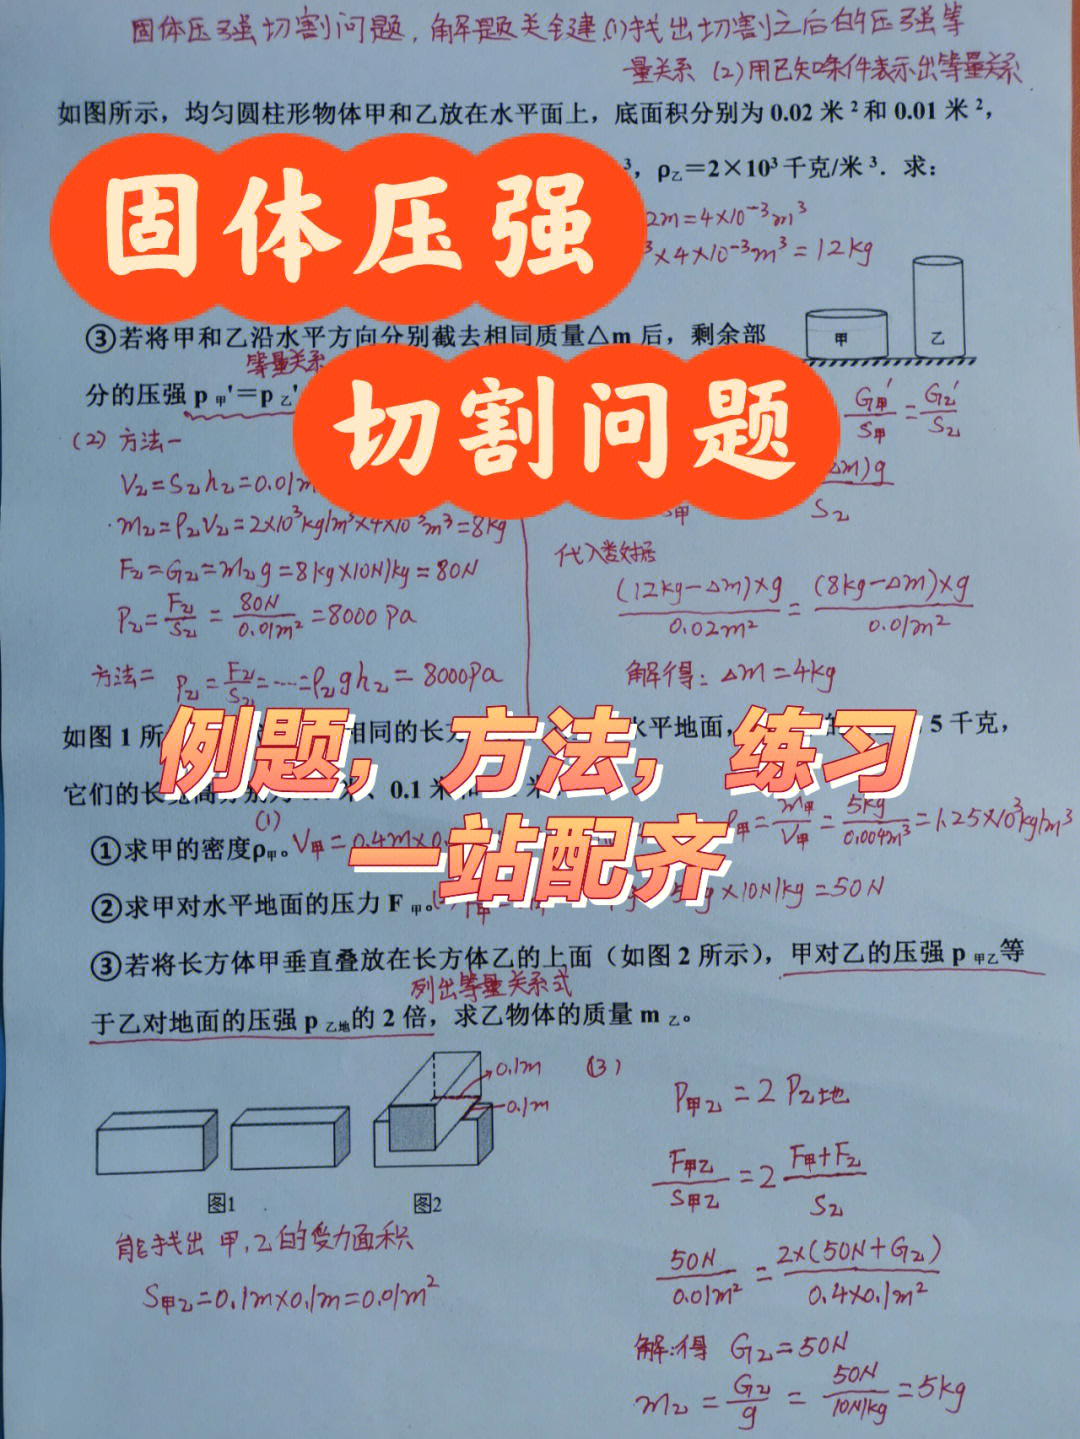 固体压强切割问题，解题关键(1)找出切割之后的压强等
量关系 (2)用已知条件表示出等量关系
如图所示，均匀圆柱形物体甲和乙放在水平面上，底面积分别为0.02米²和0.01米²，
³，ρ乙＝2×10³千克/米³．求：
固体压强
2m=4×10⁻³m³
³×4×10⁻³m³=12kg
③若将甲和乙沿水平方向分别截去相同质量△m后，剩余部
等量关系
分的压强p甲'＝p乙'
甲
乙
切割问题
G甲'/S甲=G乙'/S乙
m)g
S甲
S乙
(2)方法一
V乙=S乙h乙=0.01m
m乙=ρ乙V乙=2×10³kg/m³×4×10⁻³m³=8kg
F乙=G乙=m乙g=8kg×10N/kg=80N
P乙=F乙/S乙=80N/0.01m²=8000Pa
方法二 P乙=F乙/S乙=⋯=ρ乙gh乙=8000Pa
代入数据
(12kg-△m)×g/0.02m²=(8kg-△m)×g/0.01m²
解得：△m=4kg
如图1所
相同的长方
水平地面，
5千克，
例题，方法，练习
一站配齐
它们的长宽高分别为
米、0.1米和
米
(1)
①求甲的密度ρ甲。V甲=0.4m×0.
ρ甲=m甲/V甲=5kg/0.004m³=1.25×10³kg/m³
②求甲对水平地面的压力F甲。
g×10N/kg=50N
③若将长方体甲垂直叠放在长方体乙的上面（如图2所示），甲对乙的压强p甲乙等
列出等量关系式
于乙对地面的压强p乙地的2倍，求乙物体的质量m乙。
0.1m
0.1m
图1
图2
能找出甲，乙的受力面积
S甲乙=0.1m×0.1m=0.01m²
(3)
P甲乙=2P乙地
F甲乙/S甲乙=2 F甲+F乙/S乙
50N/0.01m²=2×(50N+G乙)/0.4×0.1m²
解得 G乙=50N
m乙=G乙/g=50N/10N/kg=5kg